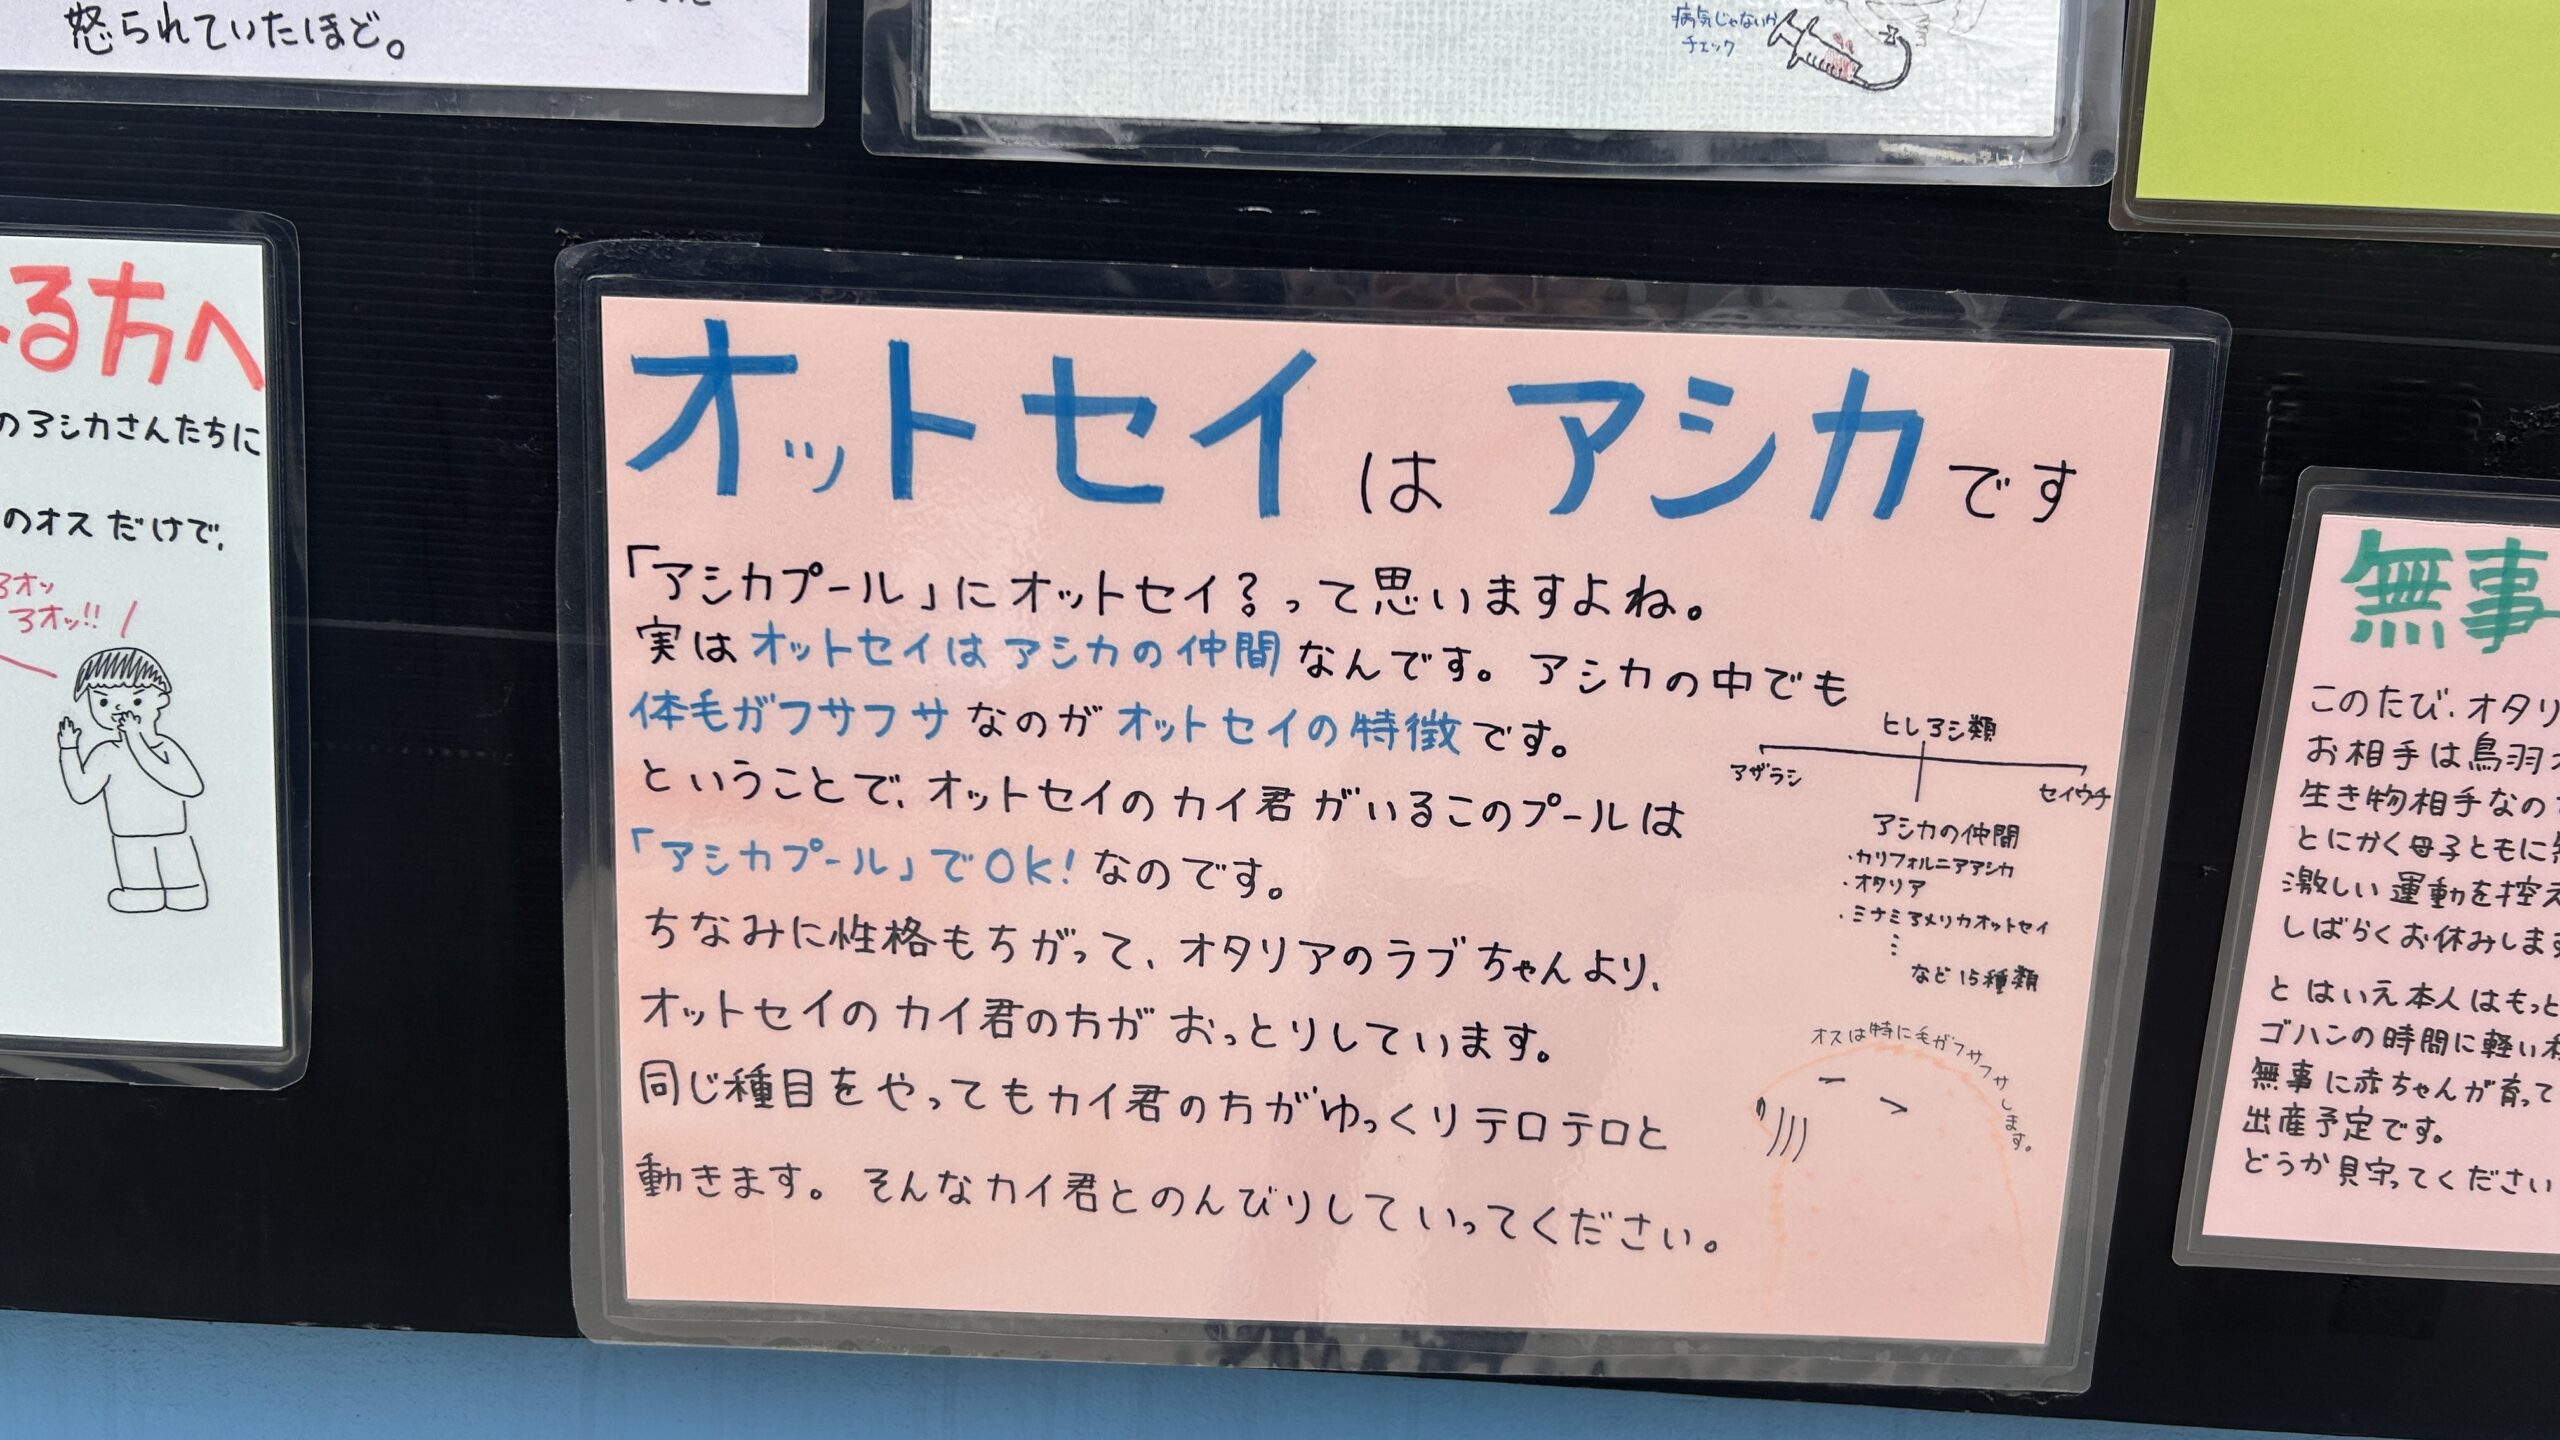 怒られていたほど。
病気じゃないか
チェック
る方へ
のアシカさんたちに
のオスだけで、
オッ
アオッ!!
オットセイはアシカです
「アシカプール」にオットセイ?って思いますよね。
実はオットセイはアシカの仲間なんです。アシカの中でも
体毛がフサフサなのがオットセイの特徴です。
ということで、オットセイのカイ君がいるこのプールは
「アシカプール」でOK!なのです。
ちなみに性格もちがって、オタリアのラブちゃんより、
オットセイのカイ君の方がおっとりしています。
同じ種目をやってもカイ君の方がゆっくりテロテロと
動きます。そんなカイ君とのんびりしていってください。
ヒレアシ類
アザラシ
セイウチ
アシカの仲間
・カリフォルニアアシカ
・オタリア
・ミナミアメリカオットセイ
⋮
など15種類
オスは特に毛がフサフサします。
無事
このたび、オタリ
お相手は鳥羽
生き物相手なの
とにかく母子ともに
激しい運動を控え
しばらくお休みします
とはいえ本人はもっと
ゴハンの時間に軽い
無事に赤ちゃんが育って
出産予定です。
どうか見守ってください